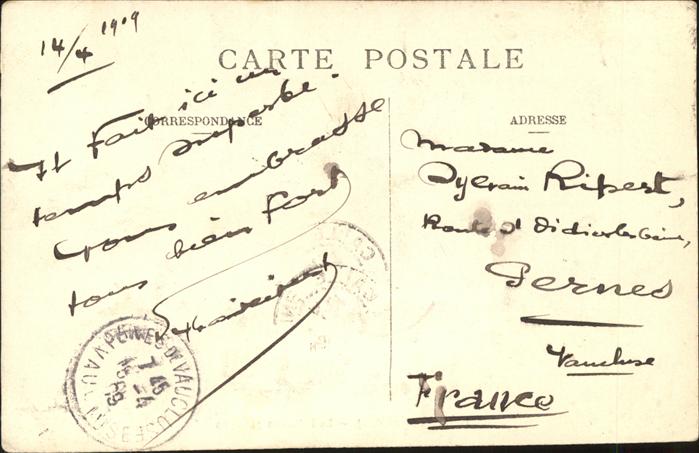 14/4 1909
CARTE POSTALE
CORRESPONDANCE
Il Fait ici un
temps superbe.
Vous embrasse
tous bien Fort
ADRESSE
Madame
Sylvain Ripert,
Route de
Pernes
Vaucluse
France
PERNES DE VAUCLUSE
7 45
-4
09